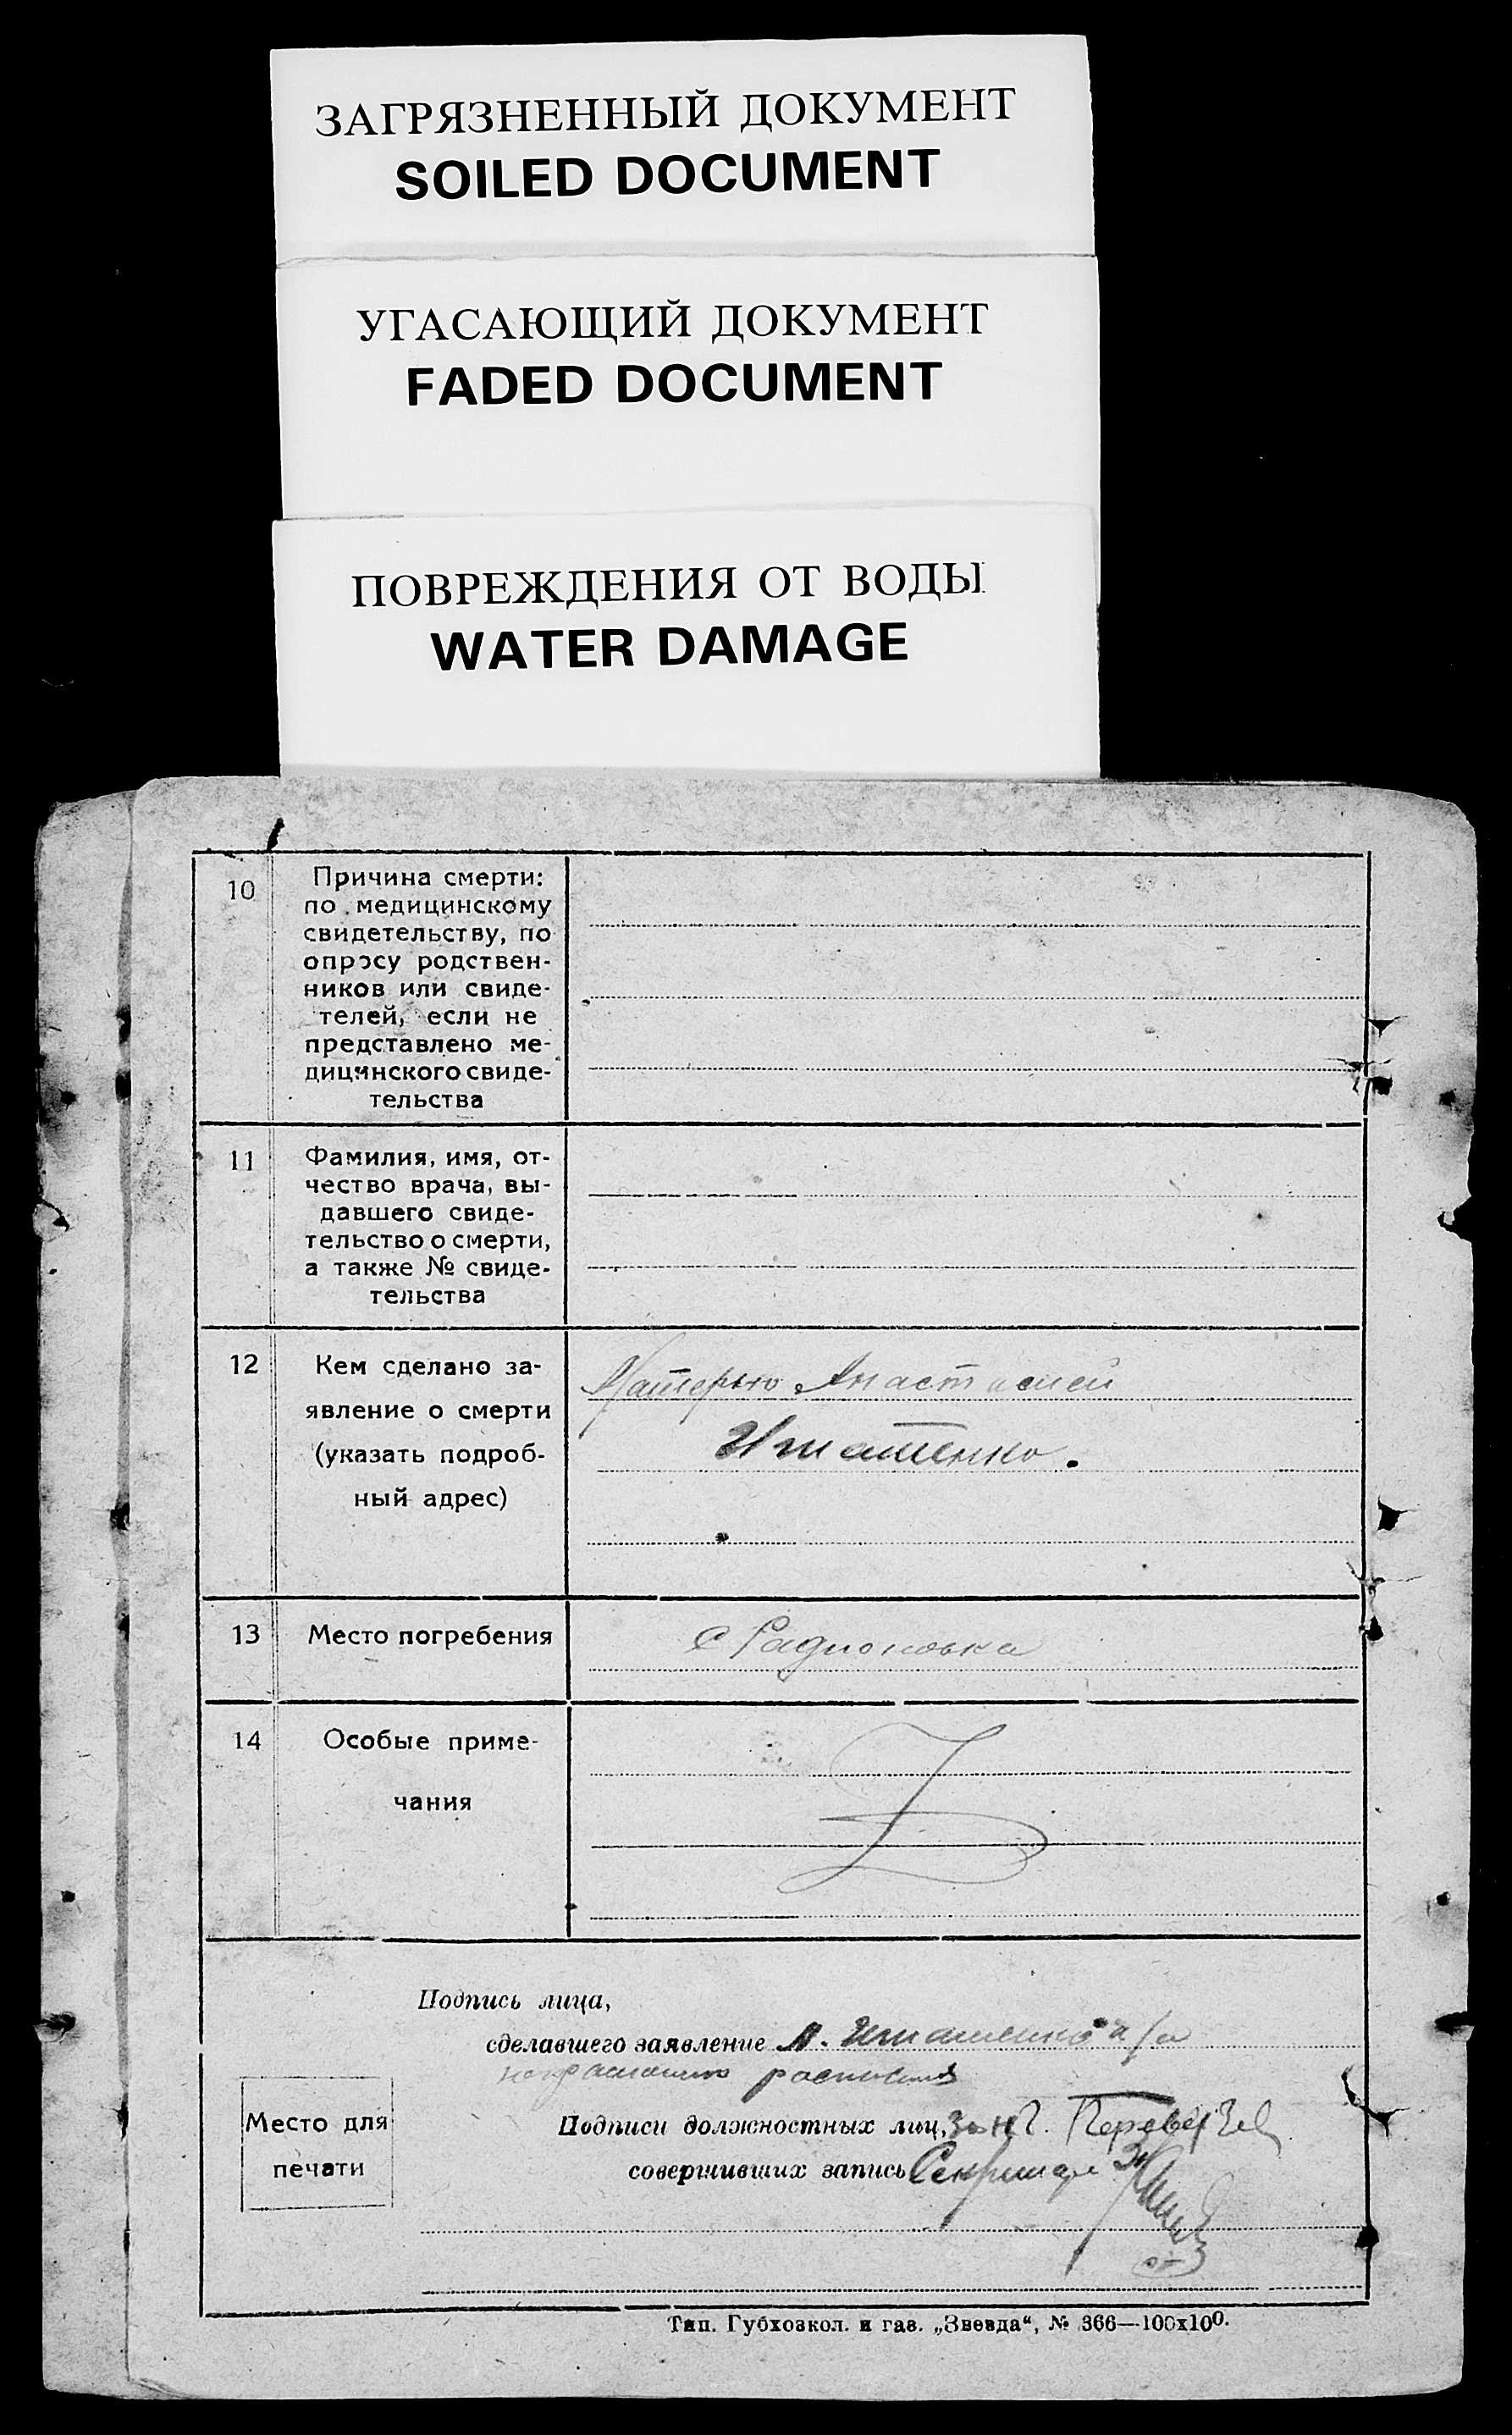 ЗАГРЯЗНЕННЫЙ ДОКУМЕНТ
SOILED DOCUMENT
УГАСАЮЩИЙ ДОКУМЕНТ
FADED DOCUMENT
ПОВРЕЖДЕНИЯ ОТ ВОДЫ
WATER DAMAGE
10
Причина смерти:
по медицинскому
свидетельству, по
опросу родствен-
ников или свиде-
телей, если не
представлено ме-
дицинского свиде-
тельства
11
Фамилия, имя, от-
чество врача, вы-
давшего свиде-
тельство о смерти,
а также № свиде-
тельства
12
Кем сделано за-
явление о смерти
(указать подроб-
ный адрес)
Матерью Анастасией
Игнатенко.
13
Место погребения
с Радионовка
14
Особые приме-
чания
Подпись лица,
сделавшего заявление
Подписи должностных лиц,
совершивших запись Секретарь
Место для
печати
Тип. Губхозкол. и газ. „Звезда“, № 366—100х100.